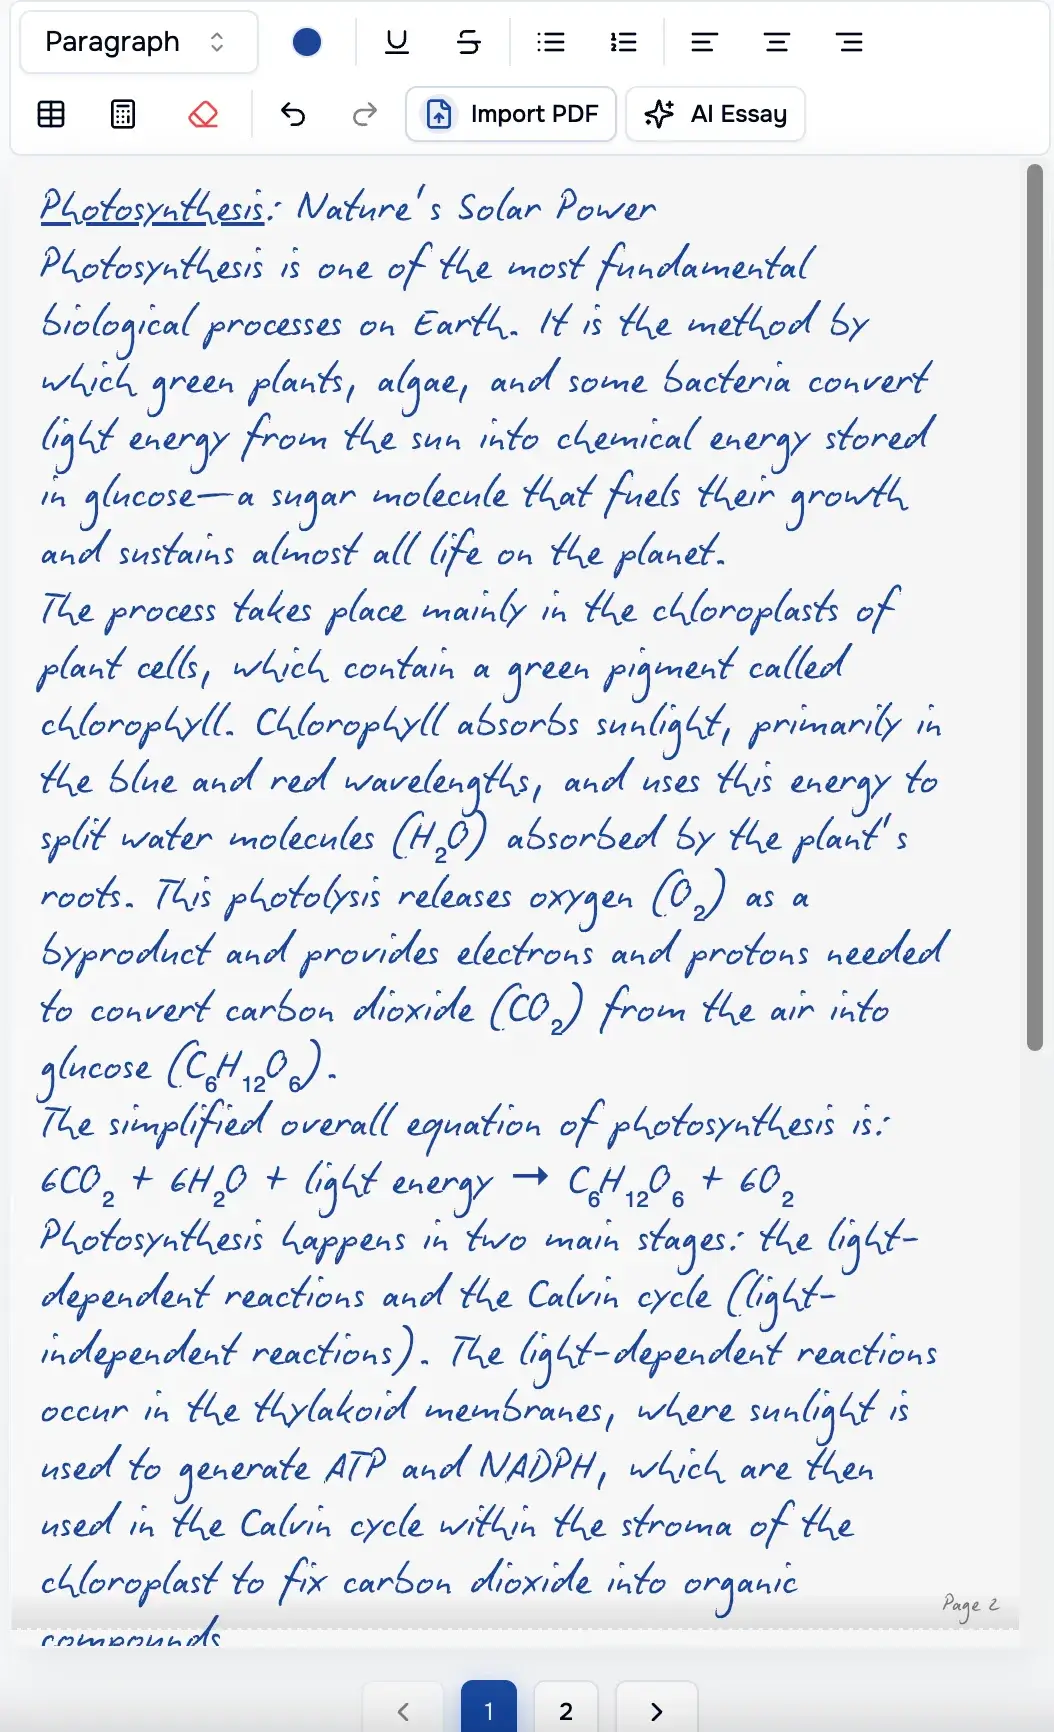 Paragraph
Import PDF
AI Essay
Photosynthesis: Nature's Solar Power
Photosynthesis is one of the most fundamental
biological processes on Earth. It is the method by
which green plants, algae, and some bacteria convert
light energy from the sun into chemical energy stored
in glucose—a sugar molecule that fuels their growth
and sustains almost all life on the planet.
The process takes place mainly in the chloroplasts of
plant cells, which contain a green pigment called
chlorophyll. Chlorophyll absorbs sunlight, primarily in
the blue and red wavelengths, and uses this energy to
split water molecules (H₂O) absorbed by the plant's
roots. This photolysis releases oxygen (O₂) as a
byproduct and provides electrons and protons needed
to convert carbon dioxide (CO₂) from the air into
glucose (C₆H₁₂O₆).
The simplified overall equation of photosynthesis is:
6CO₂ + 6H₂O + light energy → C₆H₁₂O₆ + 6O₂
Photosynthesis happens in two main stages: the light-
dependent reactions and the Calvin cycle (light-
independent reactions). The light-dependent reactions
occur in the thylakoid membranes, where sunlight is
used to generate ATP and NADPH, which are then
used in the Calvin cycle within the stroma of the
chloroplast to fix carbon dioxide into organic
Page 2
compounds
1
2